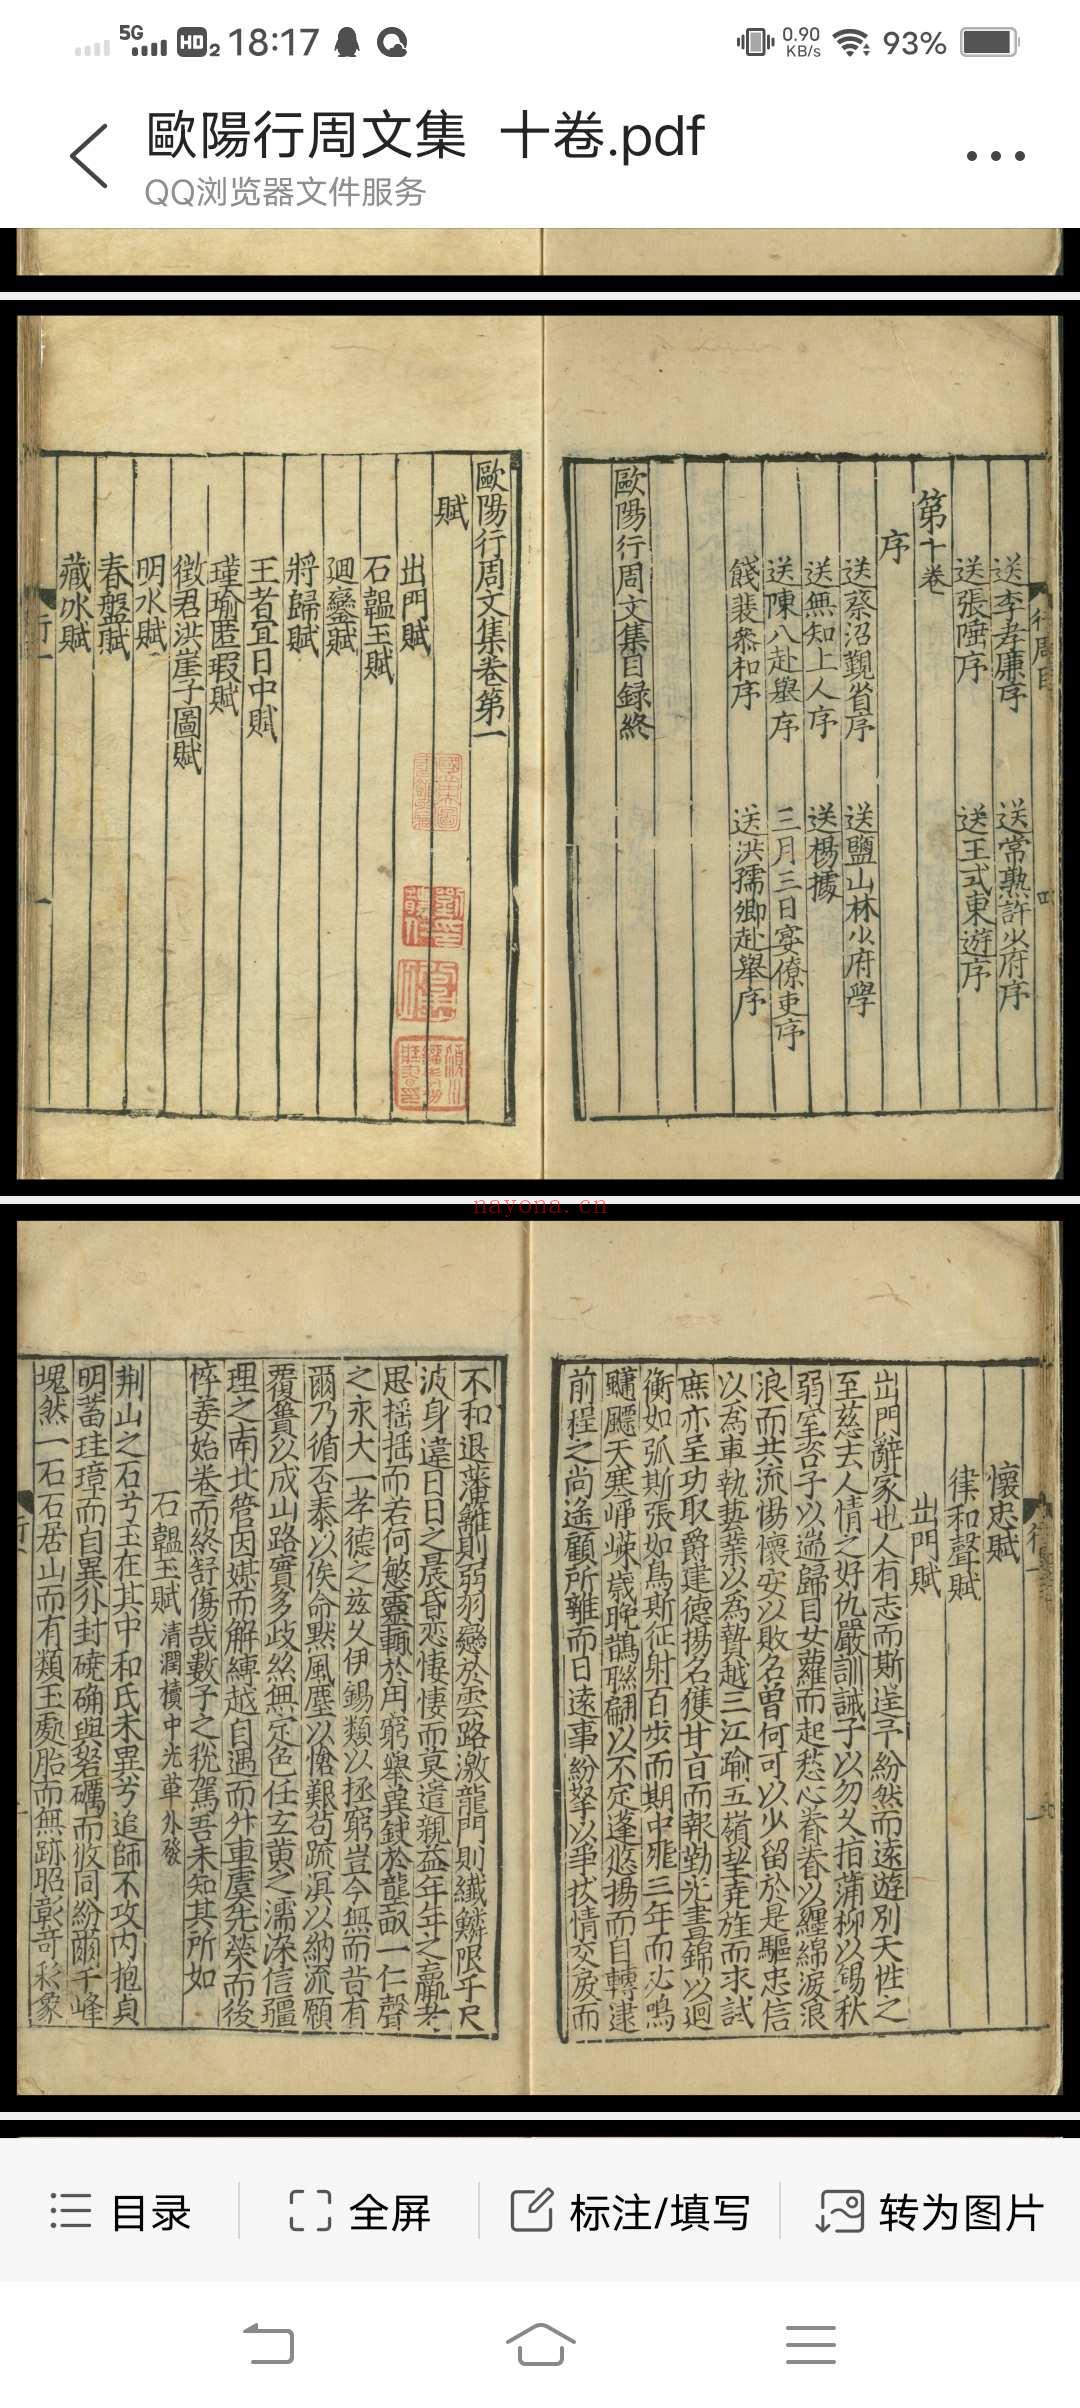 5G HD 2 18:17
0.90 KB/s 93%
歐陽行周文集 十卷.pdf
QQ浏览器文件服务
送李孝廉序 送常熟許少府序
送張陲序 送王式東遊序
第十卷
序
送蔡沼覲省序 送鹽山林少府學
送無知上人序 送楊據
送陳八赴舉序 三月三日宴僚吏序
餞裴叅和序 送洪孺卿赴舉序
歐陽行周文集目録終
歐陽行周文集卷第一
賦
出門賦
石韞玉賦
迴鑾賦
將歸賦
王者宜日中賦
瑾瑜匿瑕賦
徵君洪崖子圖賦
明水賦
春盤賦
藏冰賦
nayona.cn
懷忠賦
律和聲賦
出門賦
出門辭家也人有志而斯逞予紛然而遠遊別天性之
至慈去人情之好仇嚴訓誡予以勿久指蒲柳以錫秋
弱室咨子以遄歸目女蘿而起愁心眷眷以纏綿淚浪
浪而共流惕懷安以敗名曾何可以少留於是驅忠信
以為車執藝業以為贄越三江踰五嶺望堯旌而求試
庶亦呈功取爵建德揚名獲甘㫖而報勤光晝錦以迴
衡如弧斯張如鳥斯征射百步而期中飛三年而必鳴
飈天寒崢嶸歲晚鵲聮翩以不定蓬悠揚而自轉逮
前程之尚遥顧所離而日遠事紛拏以爭扷情交戾而
不和退藩籬則弱羽戀於雲路激龍門則纖鱗限乎尺
波身違日日之晨昏恋悽悽而莫遣親益年年之羸老
思摇摇而若何慜靈輒於用窮舉異錢於龍
一仁聲
之永大一孝德之兹久伊錫類以拯窮豈今無而昔有
爾乃循否泰以俟命黙風塵以愴艱苟疏淇以納流願
覆簣以成山路實多歧絲無定色任玄黄之濡染信疆
理之南北管因媒而解縛越自遇而升車虞先榮而後
悴姜始卷而終舒傷哉數子之稅駕吾未知其所如
石韞玉賦 清潤櫝中光華外發
荆山之石兮玉在其中和氏未異兮追師不攻内抱貞
明蓄珪璋而自異外封磽确與砮礪而攸同紛爾千峰
塊然一石石居山而有類玉處胎而無跡昭彰竒彩象
目录 全屏 标注/填写 转为图片